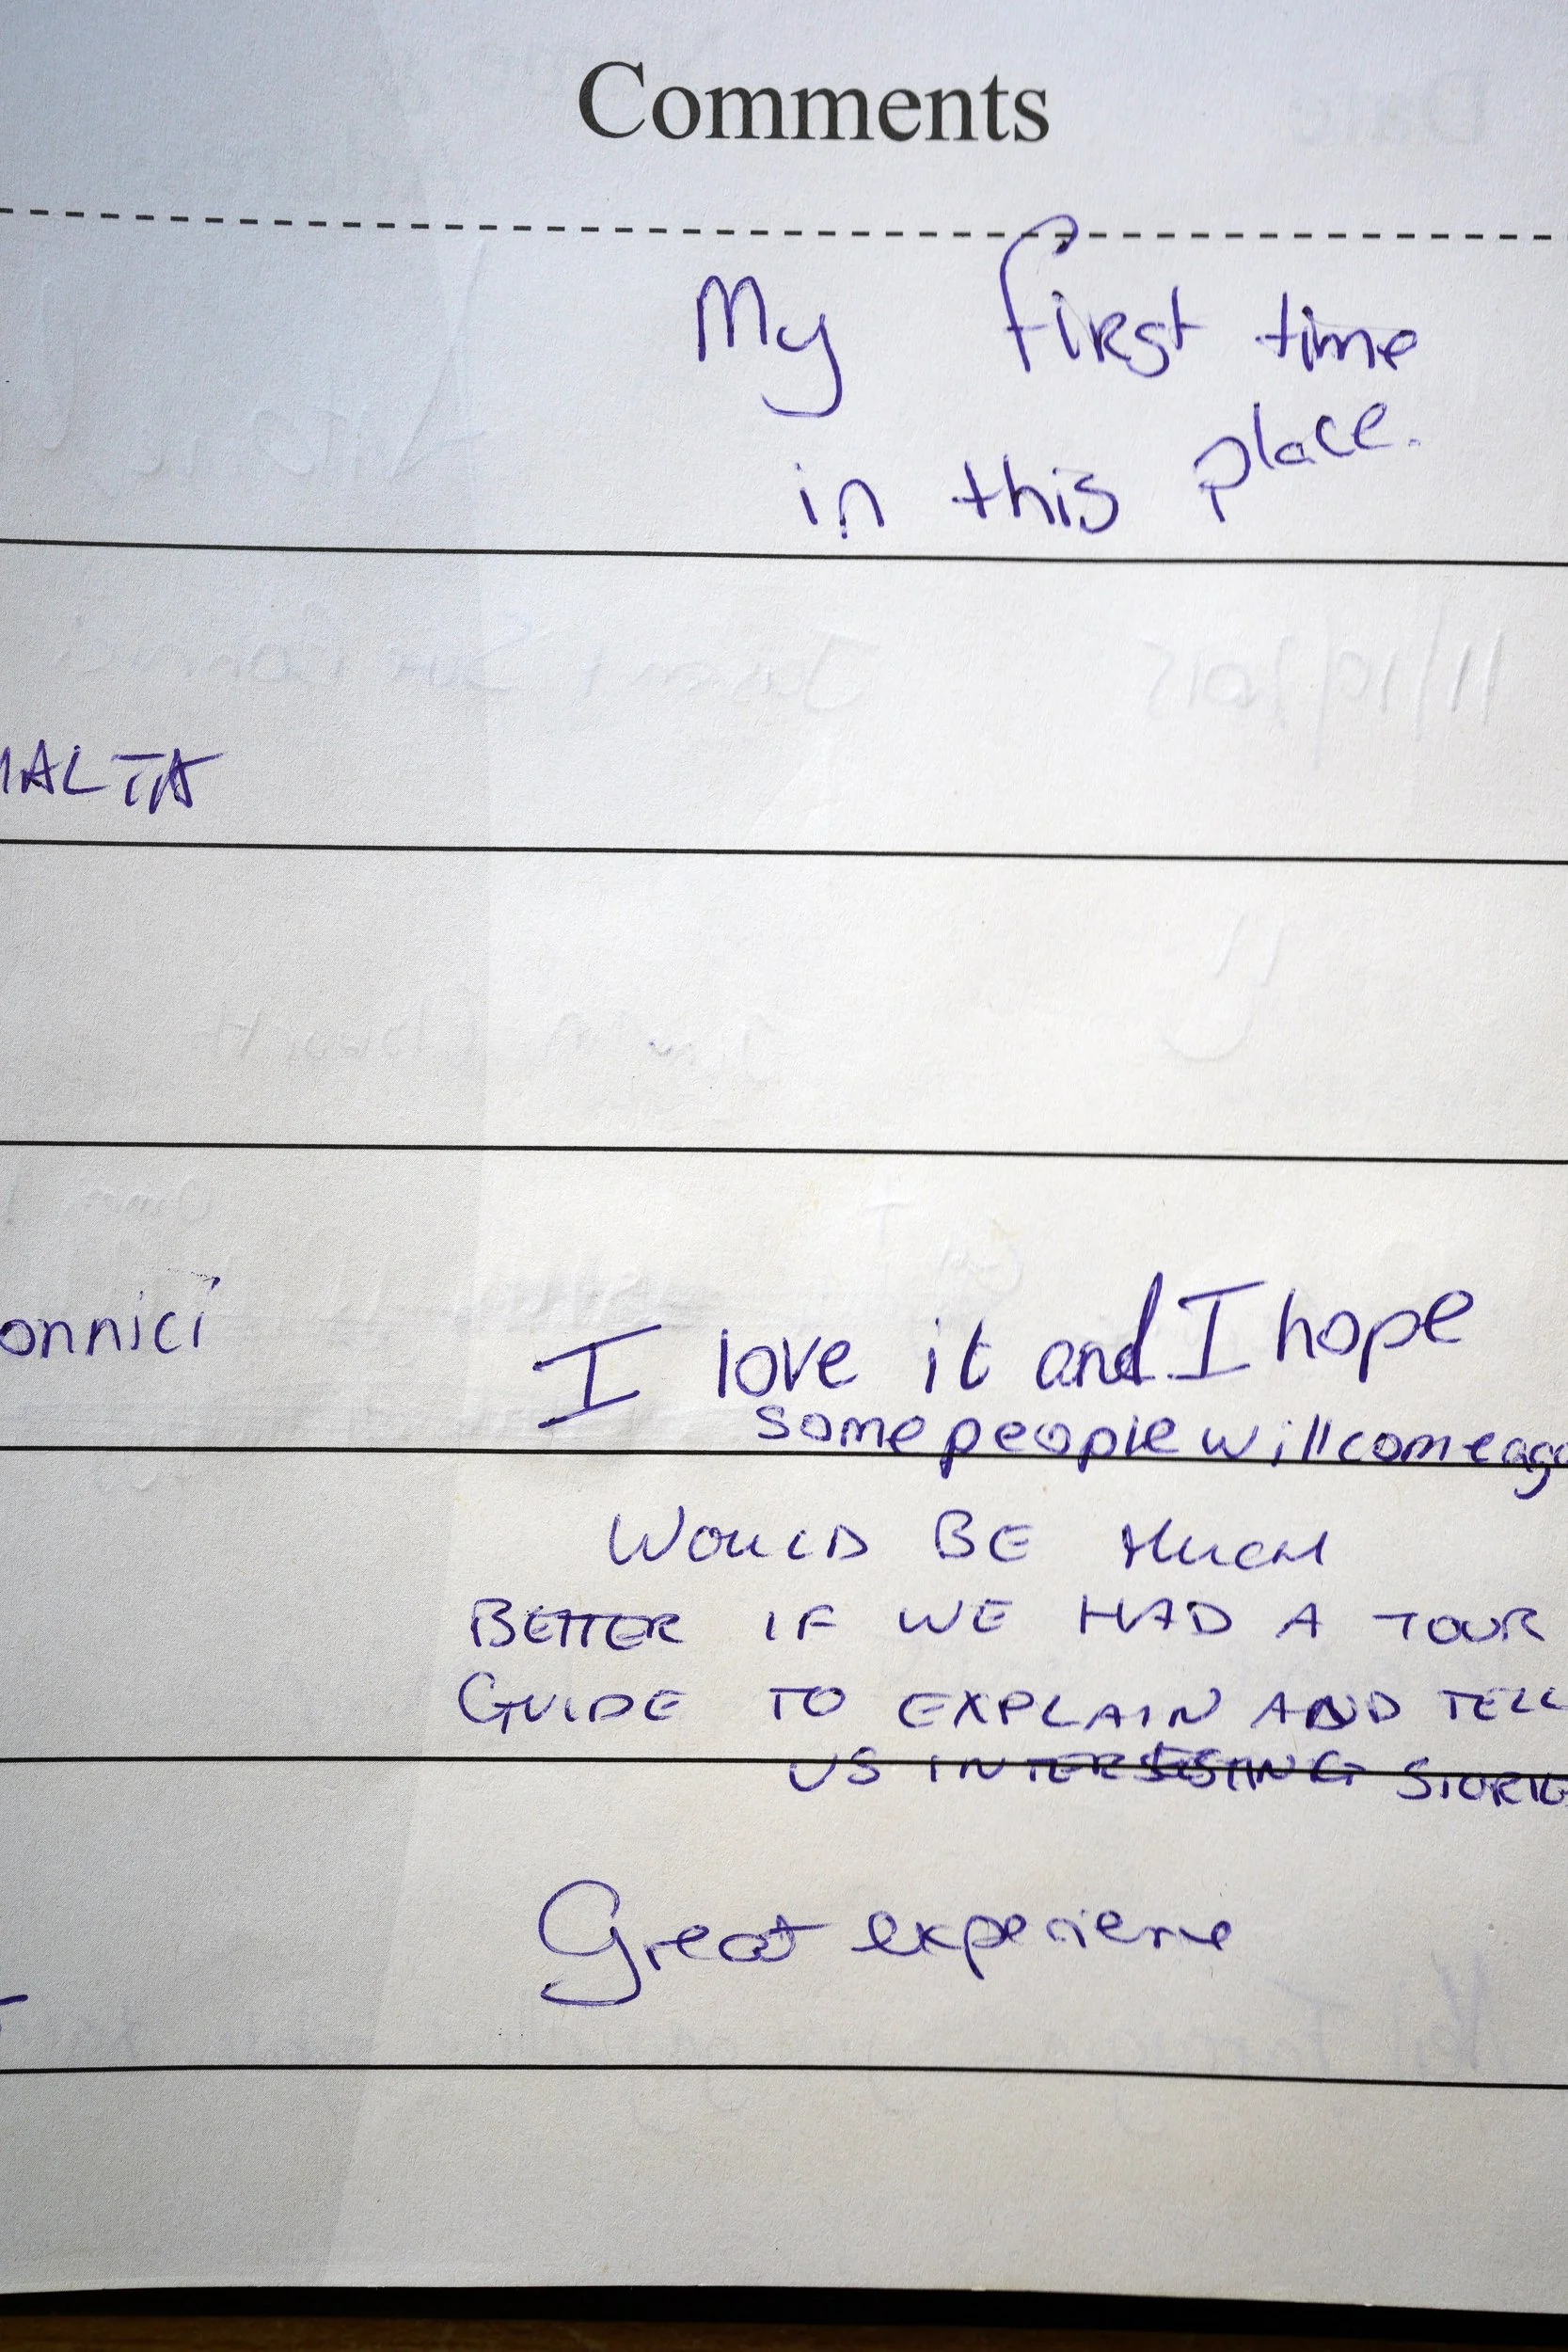 Comments
My first time
in this place.
MALTA
onnici
I love it and I hope
some people will come aga
WOULD BE MUCH
BETTER IF WE HAD A TOUR
GUIDE TO EXPLAIN AND TELL
US INTERESTING STORIE
Great experience